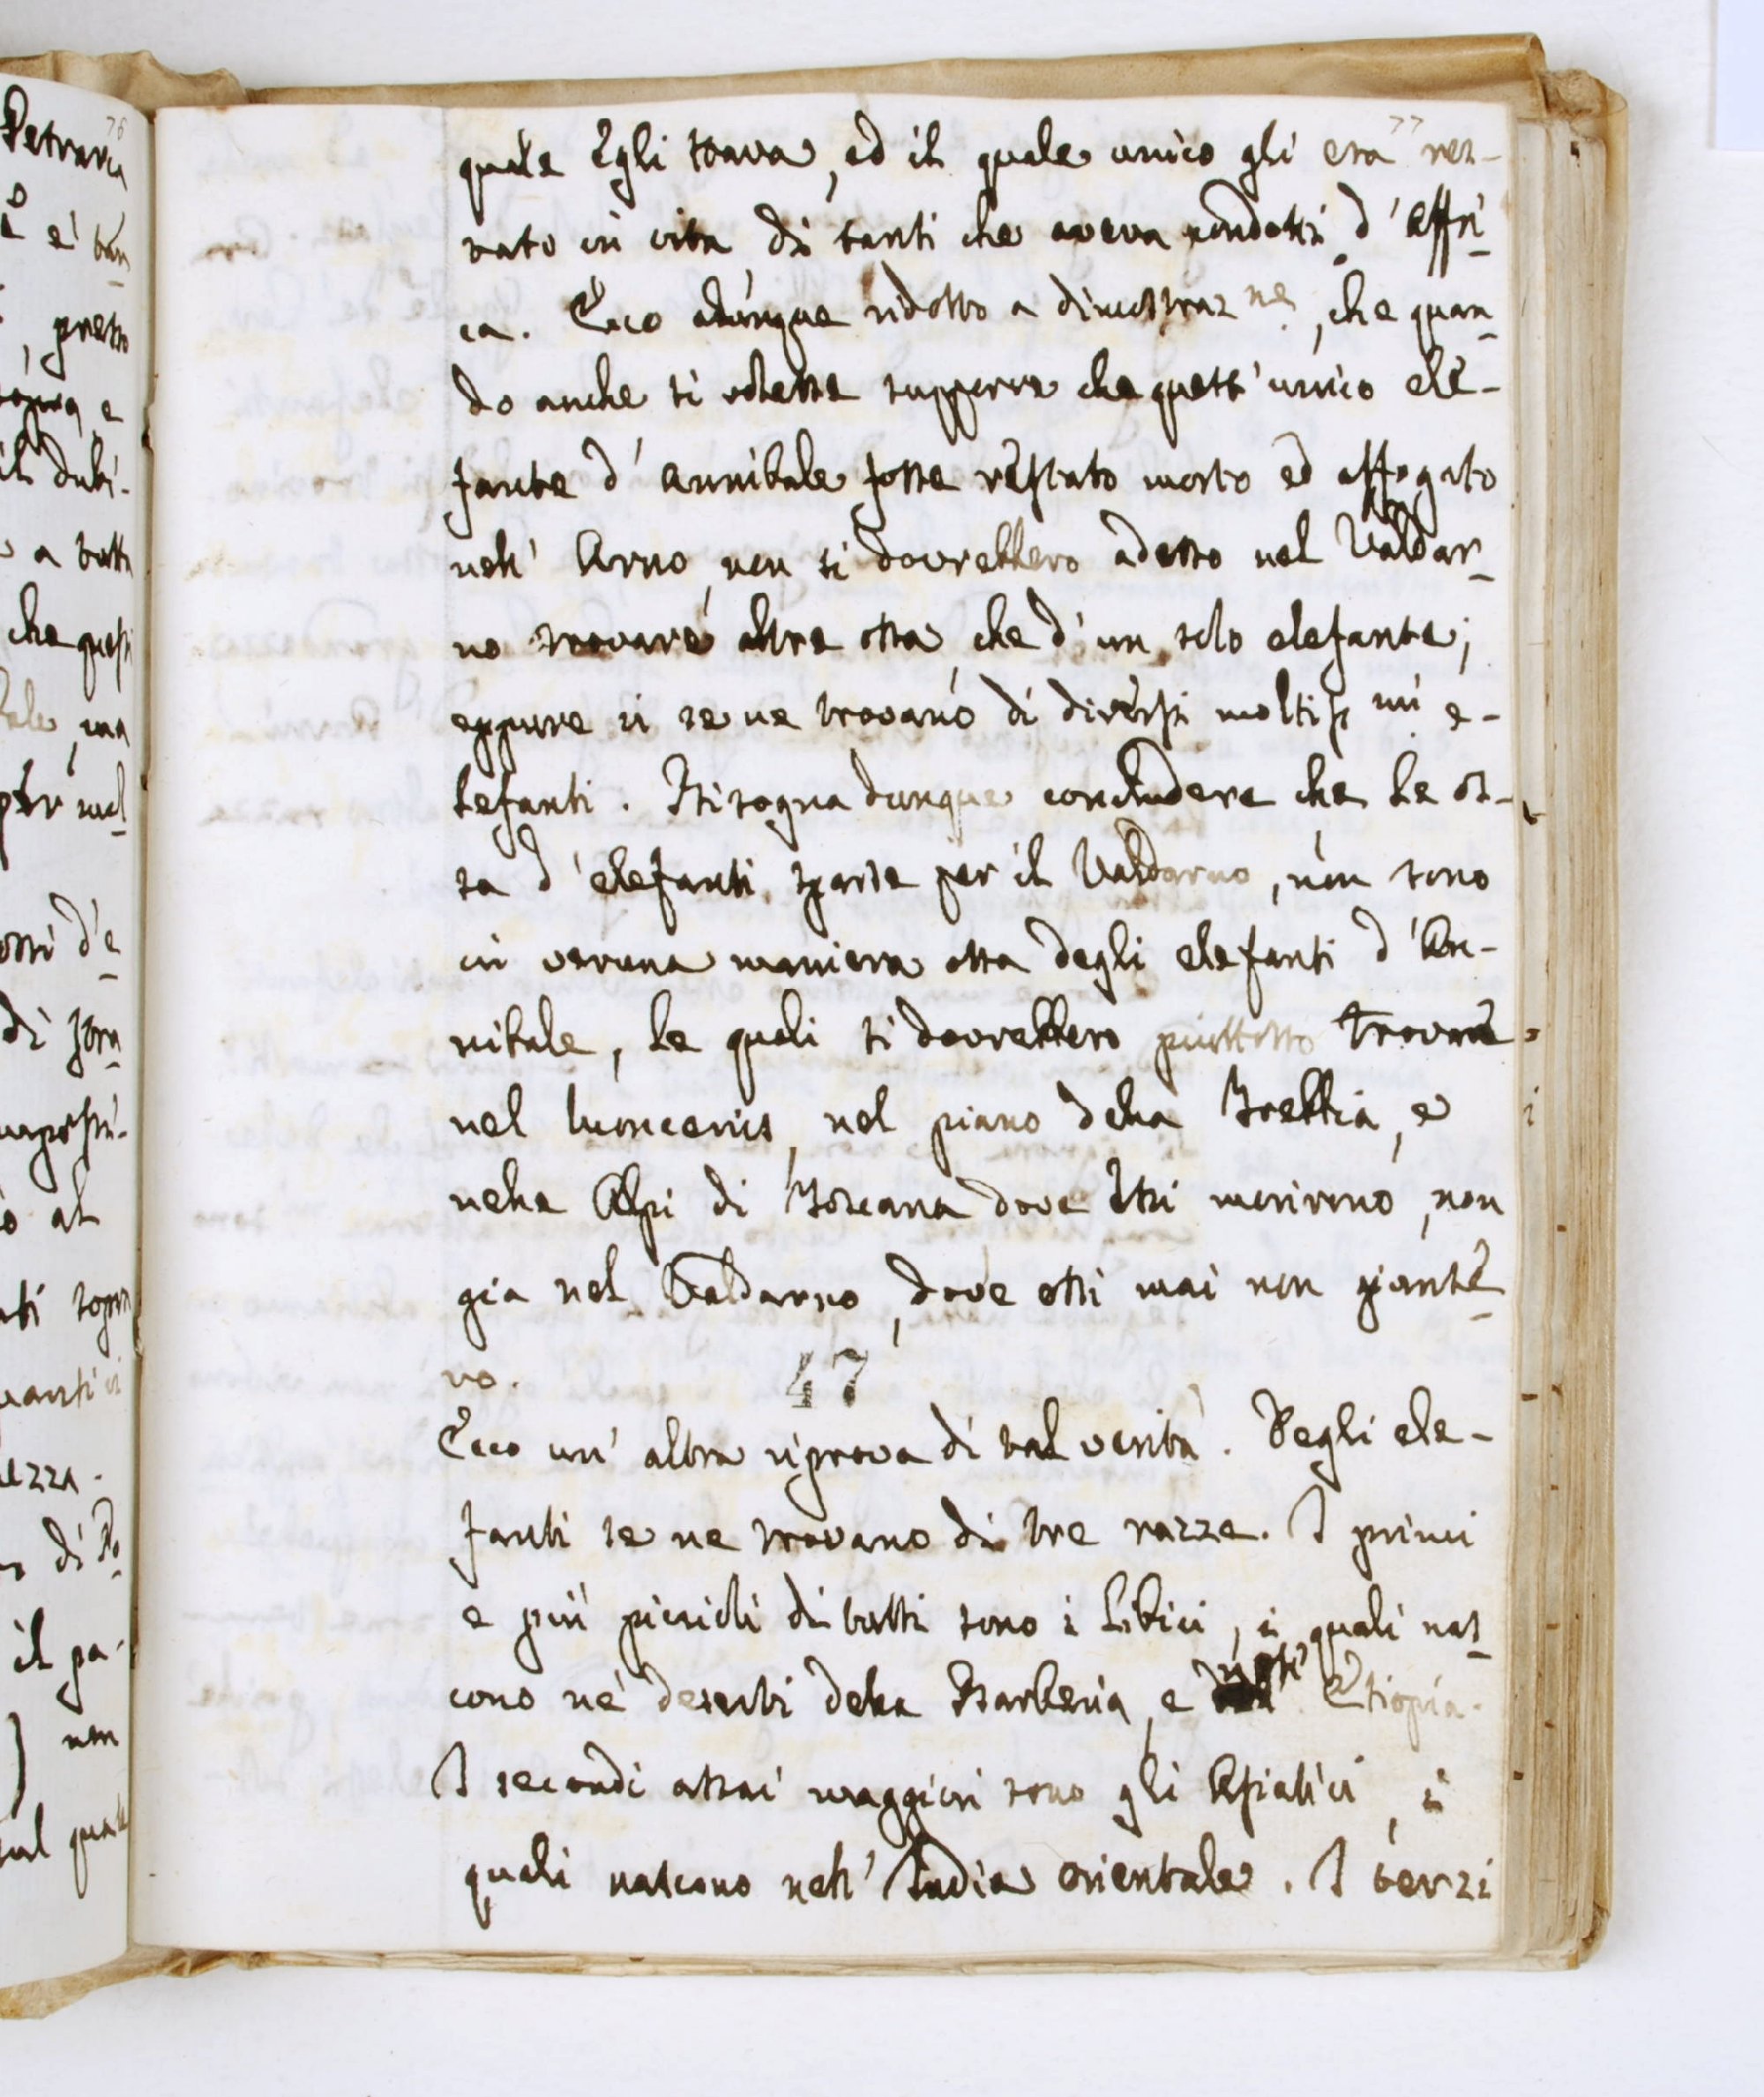 77
quale Egli stava, ed il quale unico gli era res-
tato in vita di tanti che aveva condotti d'Affri-
ca. Ecco adunque ridotto a dimostraz.ne, che quan-
do anche si volesse supporre che quest'unico ele-
fante d'Annibale fosse restato morto ed affogato
nell'Arno, non si dovrebbero adesso nel Valdar-
no trovare altre ossa, che d'un solo elefante;
eppure ci se ne trovano di diversi moltiss.mi e-
lefanti. Bisogna dunque concludere che le os-
sa d'elefanti sparse per il Valdarno, non sono
in veruna maniera ossa degli elefanti d'An-
nibale, le quali si dovrebbero piuttosto trovare
nel Moncenis, nel piano della Trebbia, e
nelle Alpi di Toscana dove Essi morirono, non
gia nel Valdarno, dove essi mai non giunse-
ro. 47
Ecco un'altra riprova di tal verità. Degli ele-
fanti se ne trovano di tre razze. I primi
e più piccioli di tutti sono i Libici, i quali nas-
cono ne' deserti della Barberia, e Etiopia.
I secondi assai maggiori sono gli Asiatici, i
quali nascono nell'India Orientale. I terzi